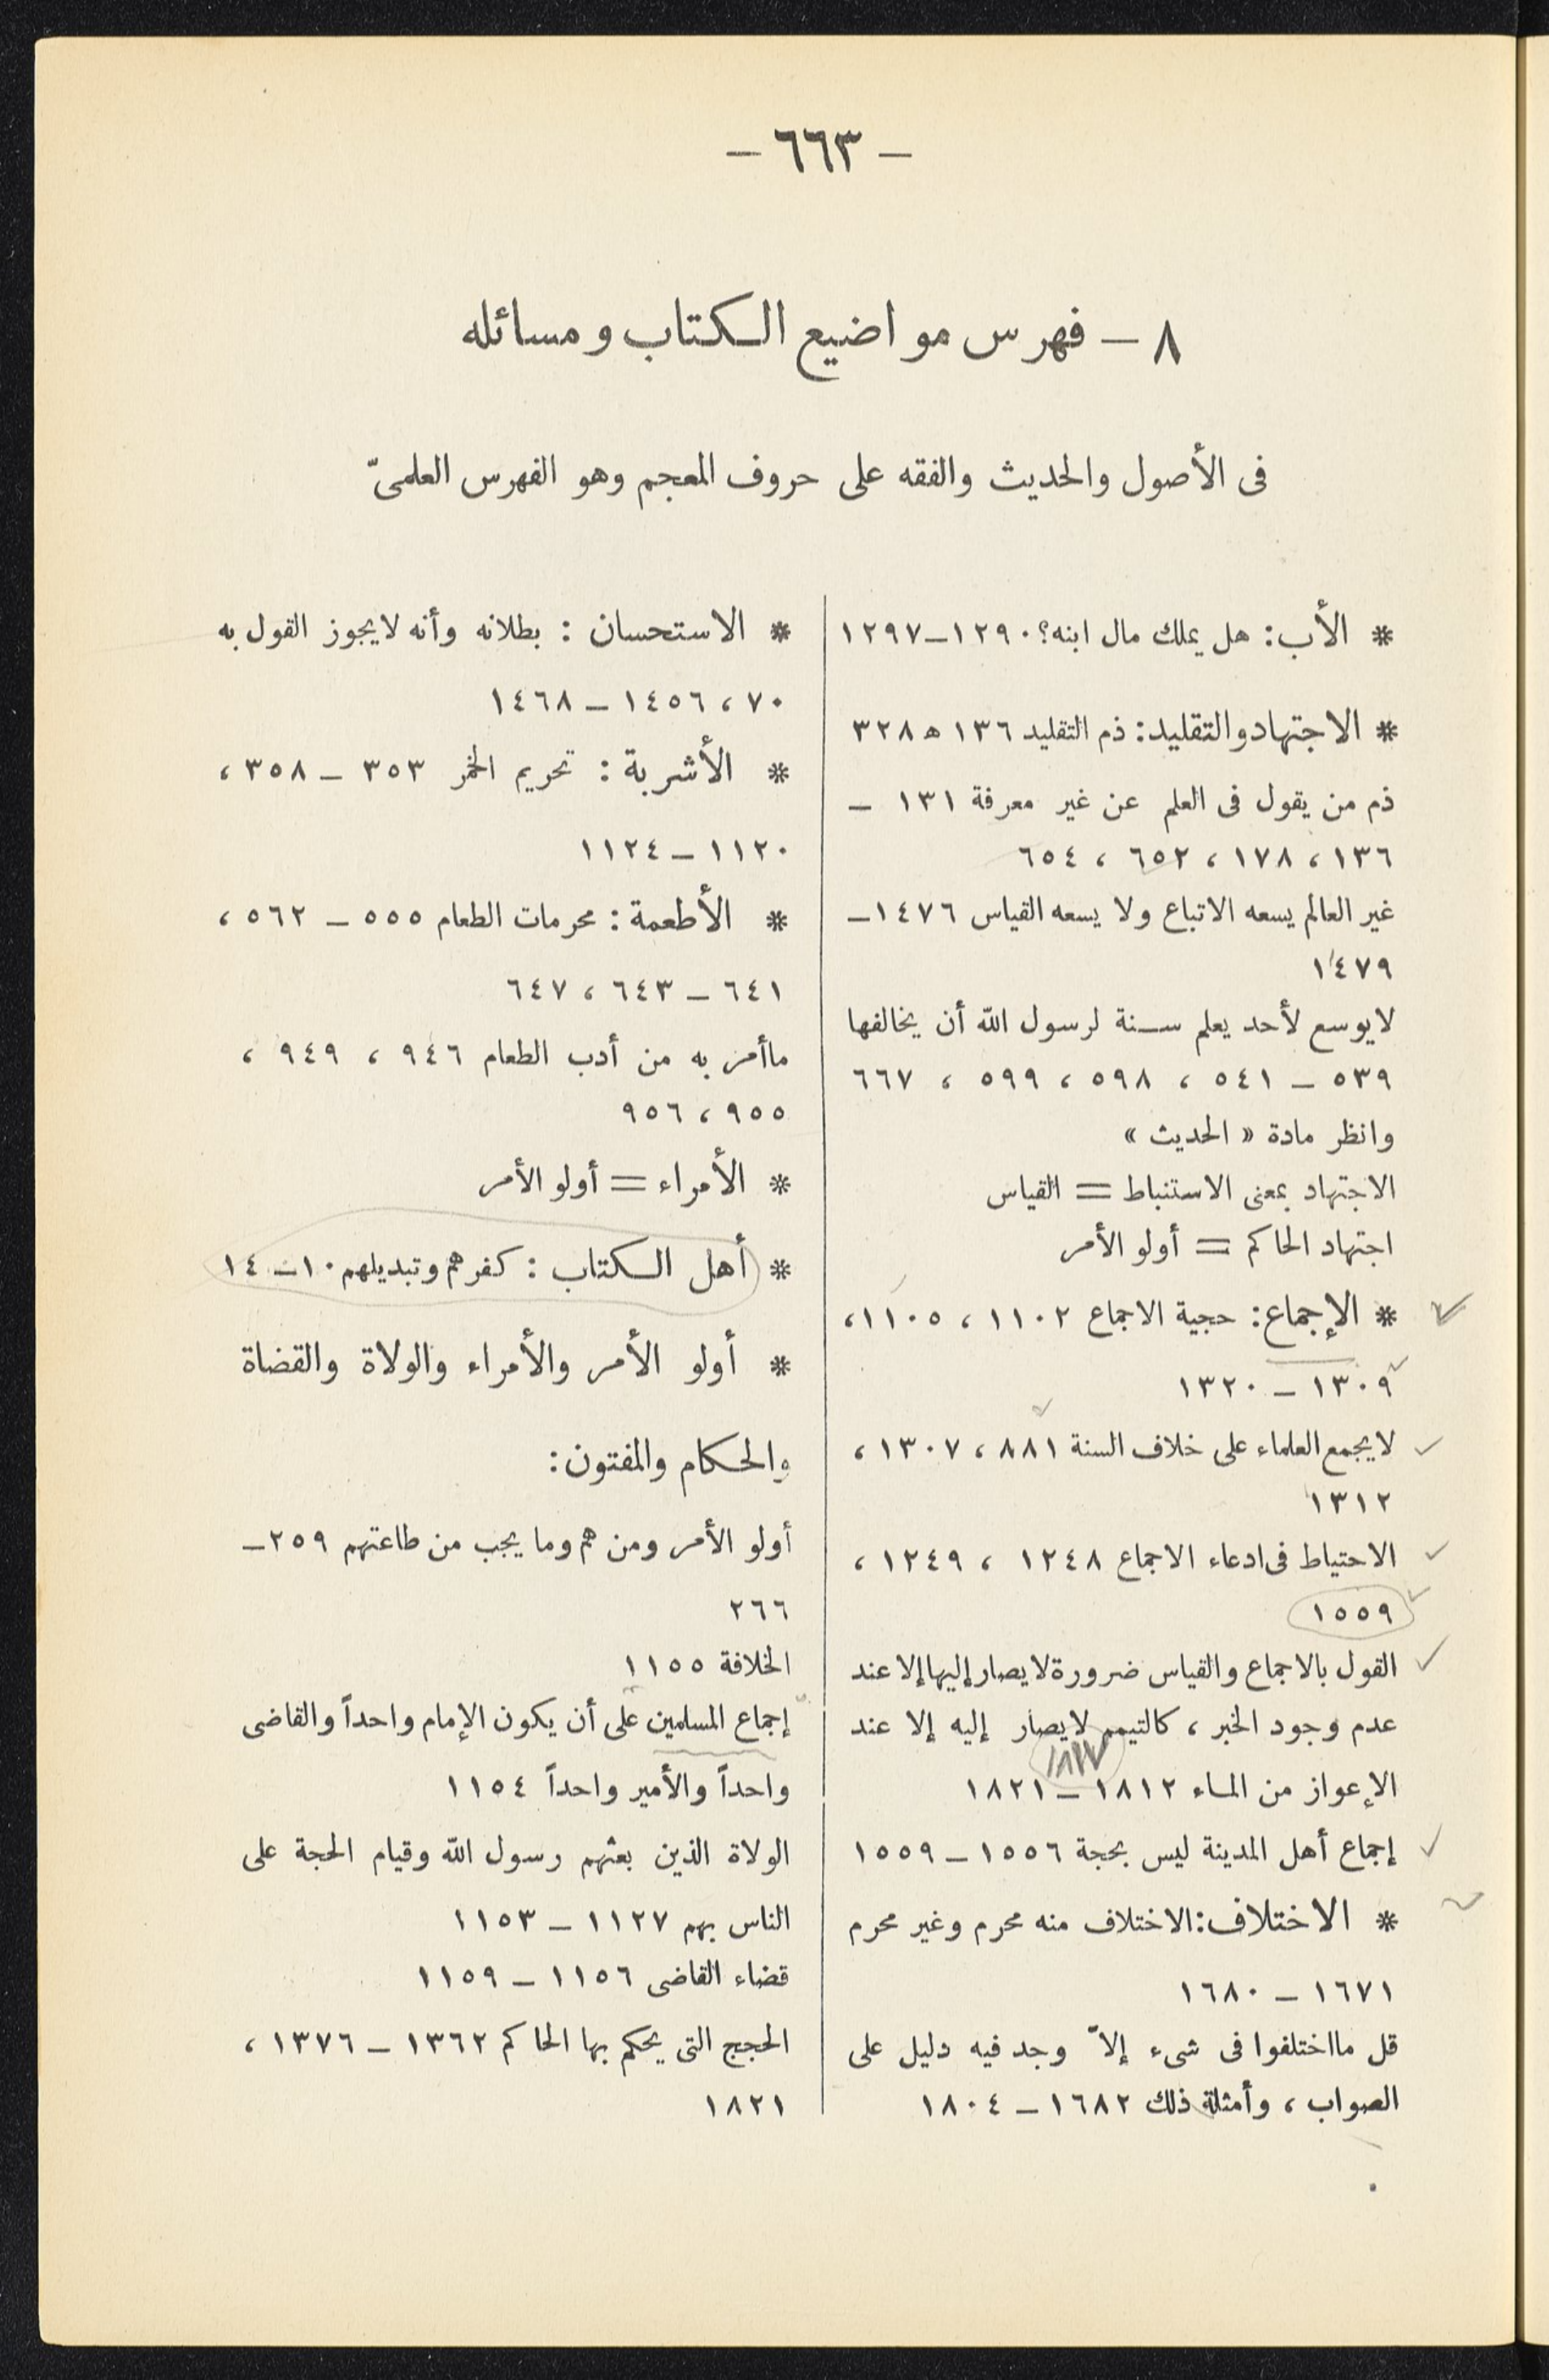 — ٦٦٣ —
٨ — فهرس مواضيع الكتاب ومسائله
فى الأصول والحديث والفقه على حروف المعجم وهو الفهرس العلمىّ
* الأب: هل يملك مال ابنه؟ ١٢٩٠ – ١٢٩٧
* الاجتهاد والتقليد: ذم التقليد ١٣٦ ه ٣٢٨
ذم من يقول فى العلم عن غير معرفة ١٣١ –
١٣٦ ، ١٧٨ ، ٦٥٢ ، ٦٥٤
غير العالم يسعه الاتباع ولا يسعه القياس ١٤٧٦ –
١٤٧٩
لا يوسع لأحد يعلم سنة لرسول الله أن يخالفها
٥٣٩ – ٥٤١ ، ٥٩٨ ، ٥٩٩ ، ٦٦٧
وانظر مادة « الحديث »
الاجتهاد بمعنى الاستنباط = القياس
اجتهاد الحاكم = أولو الأمر
* الإجماع: حجية الاجماع ١١٠٢ ، ١١٠٥ ،
١٣٠٩ – ١٣٢٠
لا يجمع العلماء على خلاف السنة ٨٨١ ، ١٣٠٧ ،
١٣١٢
الاحتياط فى ادعاء الاجماع ١٢٤٨ ، ١٢٤٩ ،
١٥٥٩
القول بالاجماع والقياس ضرورة لا يصار إليها إلا عند
عدم وجود الخبر ، كالتيمم لا يصار إليه إلا عند
١٨١٧
الإعواز من الماء ١٨١٢ – ١٨٢١
إجماع أهل المدينة ليس بحجة ١٥٥٦ – ١٥٥٩
* الاختلاف: الاختلاف منه محرم وغير محرم
١٦٧١ – ١٦٨٠
قل ما اختلفوا فى شىء إلاّ وجد فيه دليل على
الصواب ، وأمثلة ذلك ١٦٨٢ – ١٨٠٤
* الاستحسان : بطلانه وأنه لا يجوز القول به
٧٠ ، ١٤٥٦ – ١٤٦٨
* الأشربة : تحريم الخمر ٣٥٣ – ٣٥٨ ،
١١٢٠ – ١١٢٤
* الأطعمة : محرمات الطعام ٥٥٥ – ٥٦٢ ،
٦٤١ – ٦٤٣ ، ٦٤٧
ما أمر به من أدب الطعام ٩٤٦ ، ٩٤٩ ،
٩٥٥ ، ٩٥٦
* الأمراء = أولو الأمر
* أهل الكتاب : كفرهم وتبديلهم ١٠ – ١٤
* أولو الأمر والأمراء والولاة والقضاة
والحكام والمفتون:
أولو الأمر ومن هم وما يجب من طاعتهم ٢٥٩ –
٢٦٦
الخلافة ١١٥٥
إجماع المسلمين على أن يكون الإمام واحداً والقاضى
واحداً والأمير واحداً ١١٥٤
الولاة الذين بعثهم رسول الله وقيام الحجة على
الناس بهم ١١٢٧ – ١١٥٣
قضاء القاضى ١١٥٦ – ١١٥٩
الحجج التى يحكم بها الحاكم ١٣٦٢ – ١٣٧٦ ،
١٨٢١